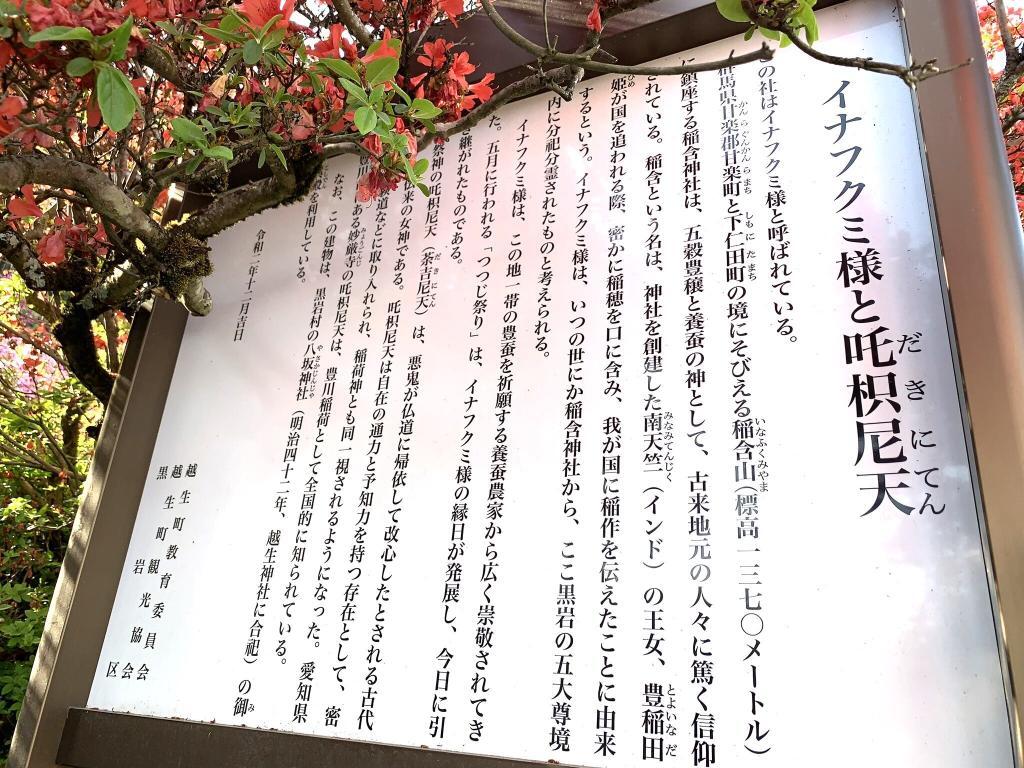 イナフクミ様と吒枳尼天
だきにてん
の社はイナフクミ様と呼ばれている。
馬県甘楽郡甘楽町と下仁田町の境にそびえる稲含山(標高一三七〇メートル)
かんらぐんかんらまち しもにたまち いなふくみやま
に鎮座する稲含神社は、五穀豊穣と養蚕の神として、古来地元の人々に篤く信仰
されている。稲含という名は、神社を創建した南天竺(インド)の王女、豊稲田
みなみてんじく とよいなだ
姫が国を追われる際、密かに稲穂を口に含み、我が国に稲作を伝えたことに由来
ひめ
するという。イナフクミ様は、いつの世にか稲含神社から、ここ黒岩の五大尊境
内に分祀分霊されたものと考えられる。
イナフクミ様は、この地一帯の豊蚕を祈願する養蚕農家から広く崇敬されてき
た。五月に行われる「つつじ祭り」は、イナフクミ様の縁日が発展し、今日に引
き継がれたものである。
祭神の吒枳尼天(荼吉尼天)は、悪鬼が仏道に帰依して改心したとされる古代
だきにてん
仏来の女神である。吒枳尼天は自在の通力と予知力を持つ存在として、密
道などに取り入れられ、稲荷神とも同一視されるようになった。愛知県
豊川にある妙厳寺の吒枳尼天は、豊川稲荷として全国的に知られている。
みょうごんじ
なお、この建物は、黒岩村の八坂神社(明治四十二年、越生神社に合祀)の御
やさかじんじゃ み
殿を利用している。
令和二年十二月吉日
越生町教育委員会
越生町観光協会
黒岩区